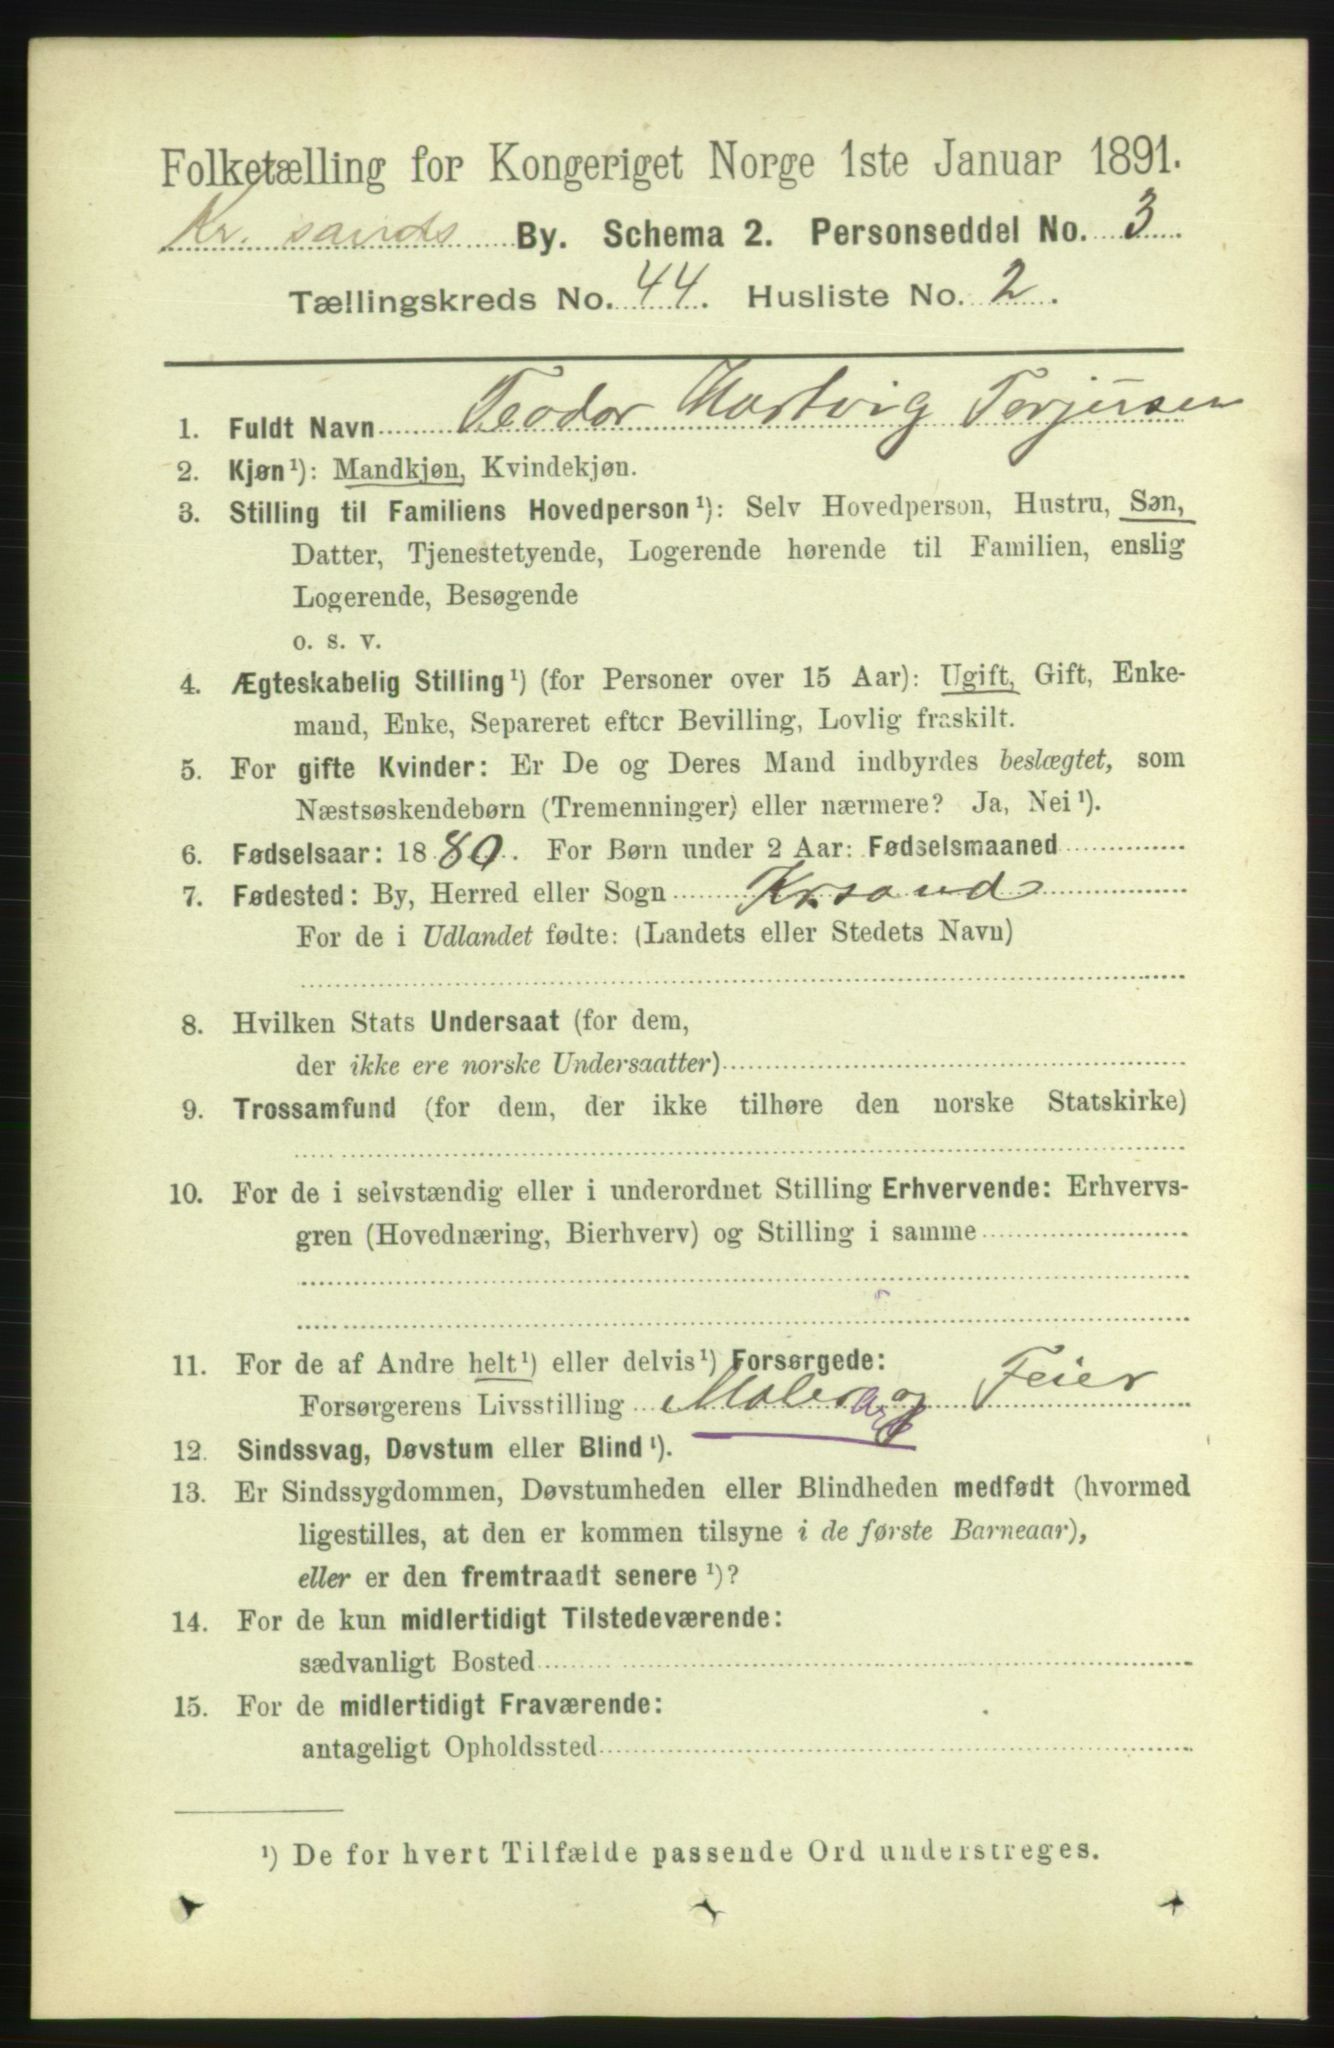 Folketælling for Kongeriget Norge 1ste Januar 1891.
Kr. sands By. Schema 2. Personseddel No. 3
Tællingskreds No. 44. Husliste No. 2.
1. Fuldt Navn Teodor Hartvig Terjusen
2. Kjøn¹): Mandkjøn, Kvindekjøn.
3. Stilling til Familiens Hovedperson¹): Selv Hovedperson, Hustru, Søn,
Datter, Tjenestetyende, Logerende hørende til Familien, enslig
Logerende, Besøgende
o. s. v.
4. Ægteskabelig Stilling¹) (for Personer over 15 Aar): Ugift, Gift, Enke-
mand, Enke, Separeret efter Bevilling, Lovlig fraskilt.
5. For gifte Kvinder: Er De og Deres Mand indbyrdes beslægtet, som
Næstsøskendebørn (Tremenninger) eller nærmere? Ja, Nei¹).
6. Fødselsaar: 1880. For Børn under 2 Aar: Fødselsmaaned
7. Fødested: By, Herred eller Sogn Krsand
For de i Udlandet fødte: (Landets eller Stedets Navn)
8. Hvilken Stats Undersaat (for dem,
der ikke ere norske Undersaatter)
9. Trossamfund (for dem, der ikke tilhøre den norske Statskirke)
10. For de i selvstændig eller i underordnet Stilling Erhvervende: Erhvervs-
gren (Hovednæring, Bierhverv) og Stilling i samme
11. For de af Andre helt¹) eller delvis¹) Forsørgede:
Forsørgerens Livsstilling Maler og Feier
12. Sindssvag, Døvstum eller Blind¹).
13. Er Sindssygdommen, Døvstumheden eller Blindheden medfødt (hvormed
ligestilles, at den er kommen tilsyne i de første Barneaar),
eller er den fremtraadt senere¹)?
14. For de kun midlertidigt Tilstedeværende:
sædvanligt Bosted
15. For de midlertidigt Fraværende:
antageligt Opholdssted
¹) De for hvert Tilfælde passende Ord understreges.